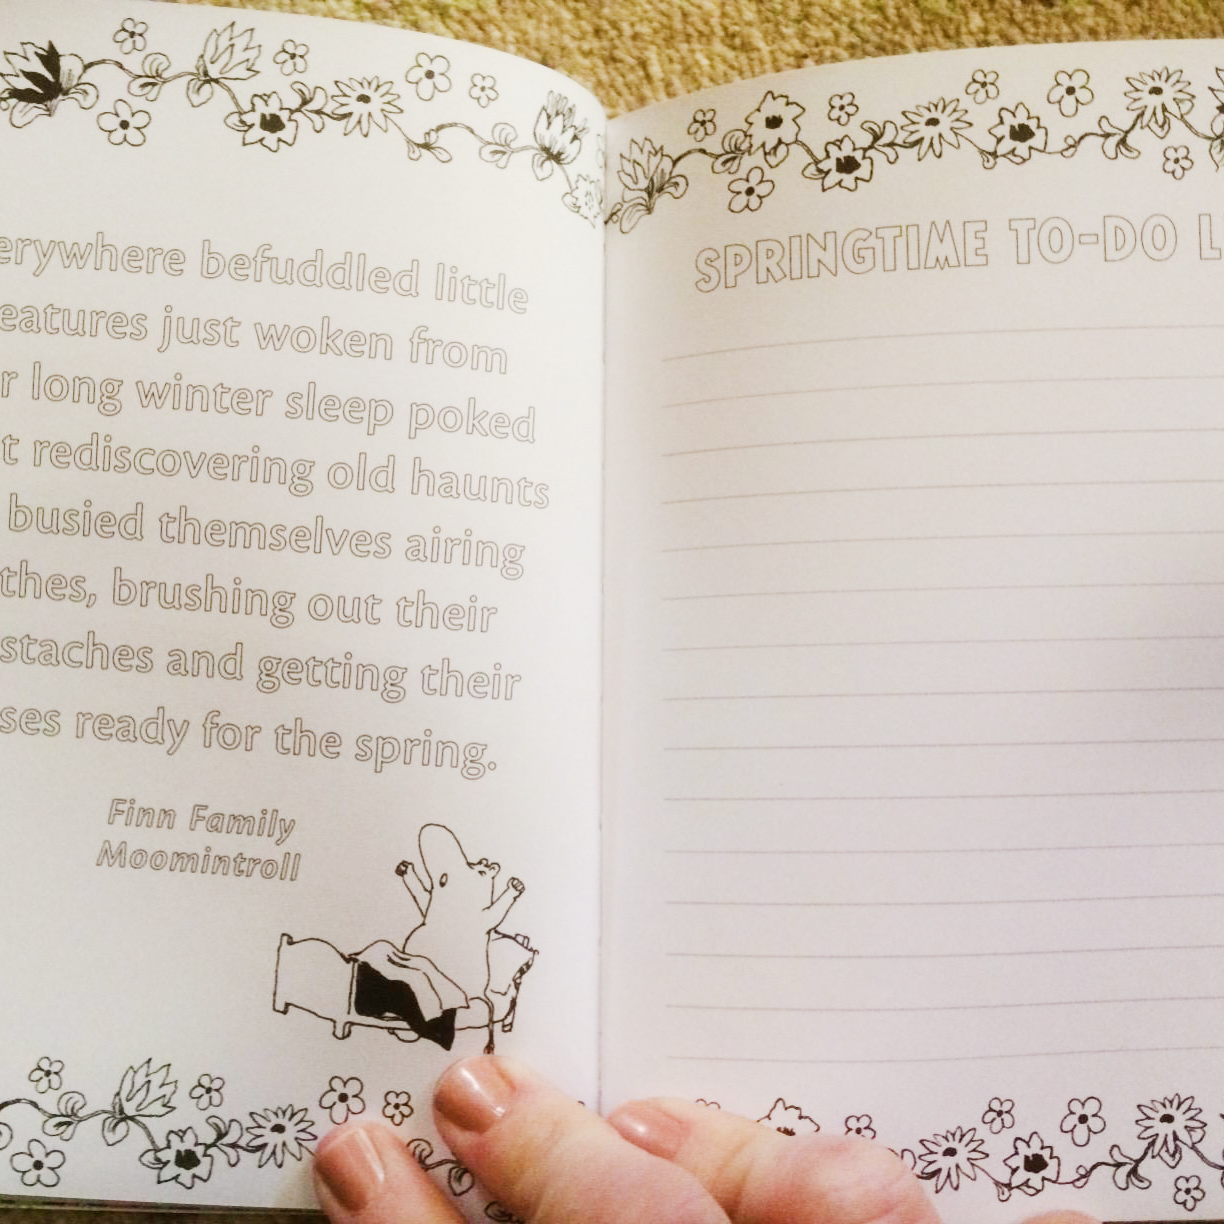 erywhere befuddled little
eatures just woken from
r long winter sleep poked
t rediscovering old haunts
busied themselves airing
thes, brushing out their
staches and getting their
ses ready for the spring.
Finn Family
Moomintroll
SPRINGTIME TO-DO L